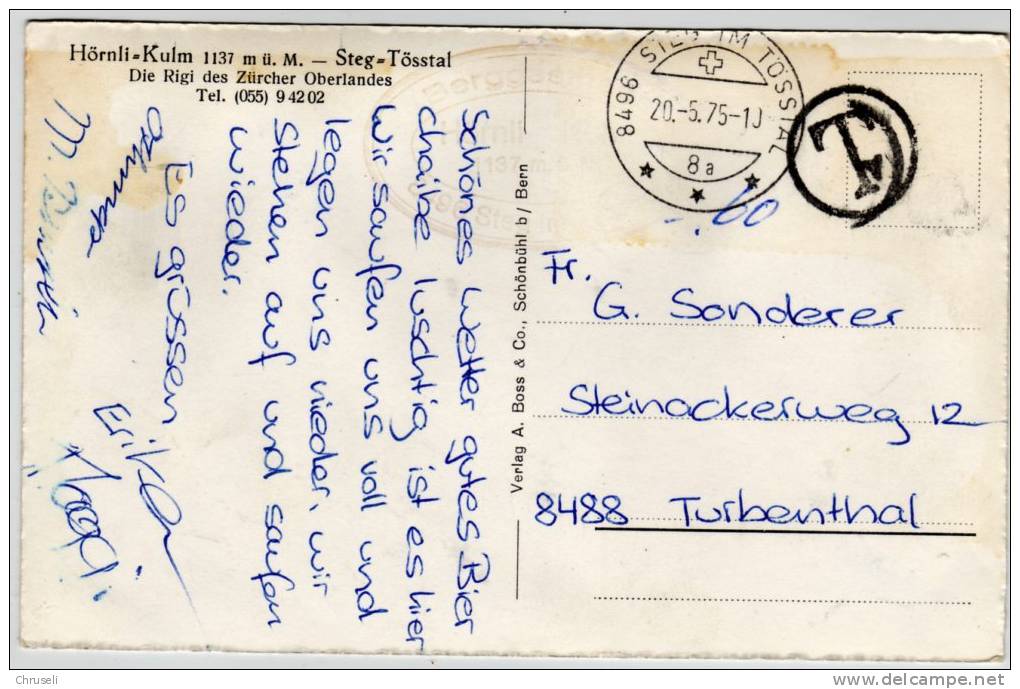 Hörnli-Kulm 1137 m ü. M. — Steg-Tösstal
Die Rigi des Zürcher Oberlandes
Tel. (055) 9 42 02
Schönes Wetter gutes Bier
chaibe luschtig ist es hier
Wir saufen uns voll und
legen uns nieder, wir
stehen auf und saufen
wieder.
Es grüssen
Erika
M.
Hörnli
1137 m.
Verlag A. Boss & Co., Schönbühl b/Bern
8496 STEG IM TÖSSTAL
20.-5.75-10
8a
T
-.60
Fr.
G. Sonderer
Steinackerweg 12
8488 Turbenthal
Chruseli
www.delcampe.net